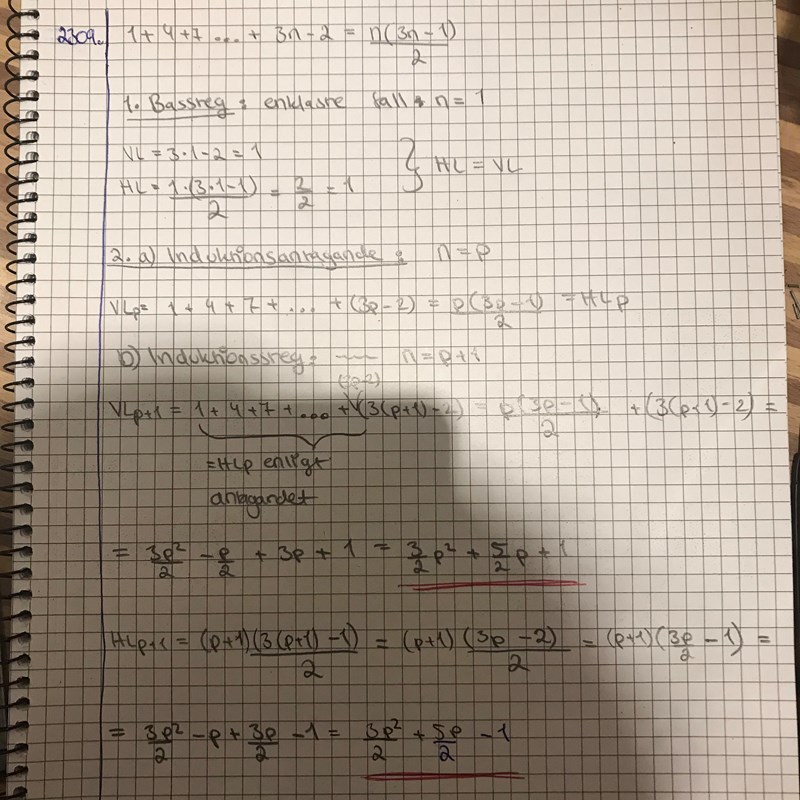 2309. 1 + 4 + 7 ... + 3n - 2 = n(3n-1)/2
1. Bassteg: enklaste fall: n = 1
VL = 3·1-2 = 1
HL = 1·(3·1-1)/2 = 2/2 = 1 } HL = VL
2. a) Induktionsantagande: n = p
VLp = 1 + 4 + 7 + ... + (3p-2) = p(3p-1)/2 = HLp
b) Induktionssteg: n = p+1
(3p-2)
VLp+1 = 1 + 4 + 7 + ... + (3(p+1)-2) = p(3p-1)/2 + (3(p+1)-2) =
= HLp enligt
antagandet
= 3p²/2 - p/2 + 3p + 1 = 3/2 p² + 5/2 p + 1
HLp+1 = (p+1)(3(p+1)-1)/2 = (p+1)(3p-2)/2 = (p+1)(3p/2 - 1) =
= 3p²/2 - p + 3p/2 - 1 = 3p²/2 + 5p/2 - 1